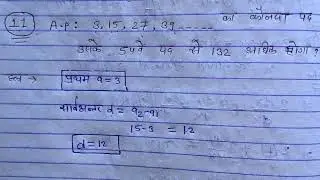 11 A.P: 3, 15, 27, 39 ...... का कौनसा पद
उसके 54वे पद से 132 अधिक होगा?
हल → प्रथम a = 3
सार्वअन्तर d = a₂-a₁
15-3 = 12
d = 12